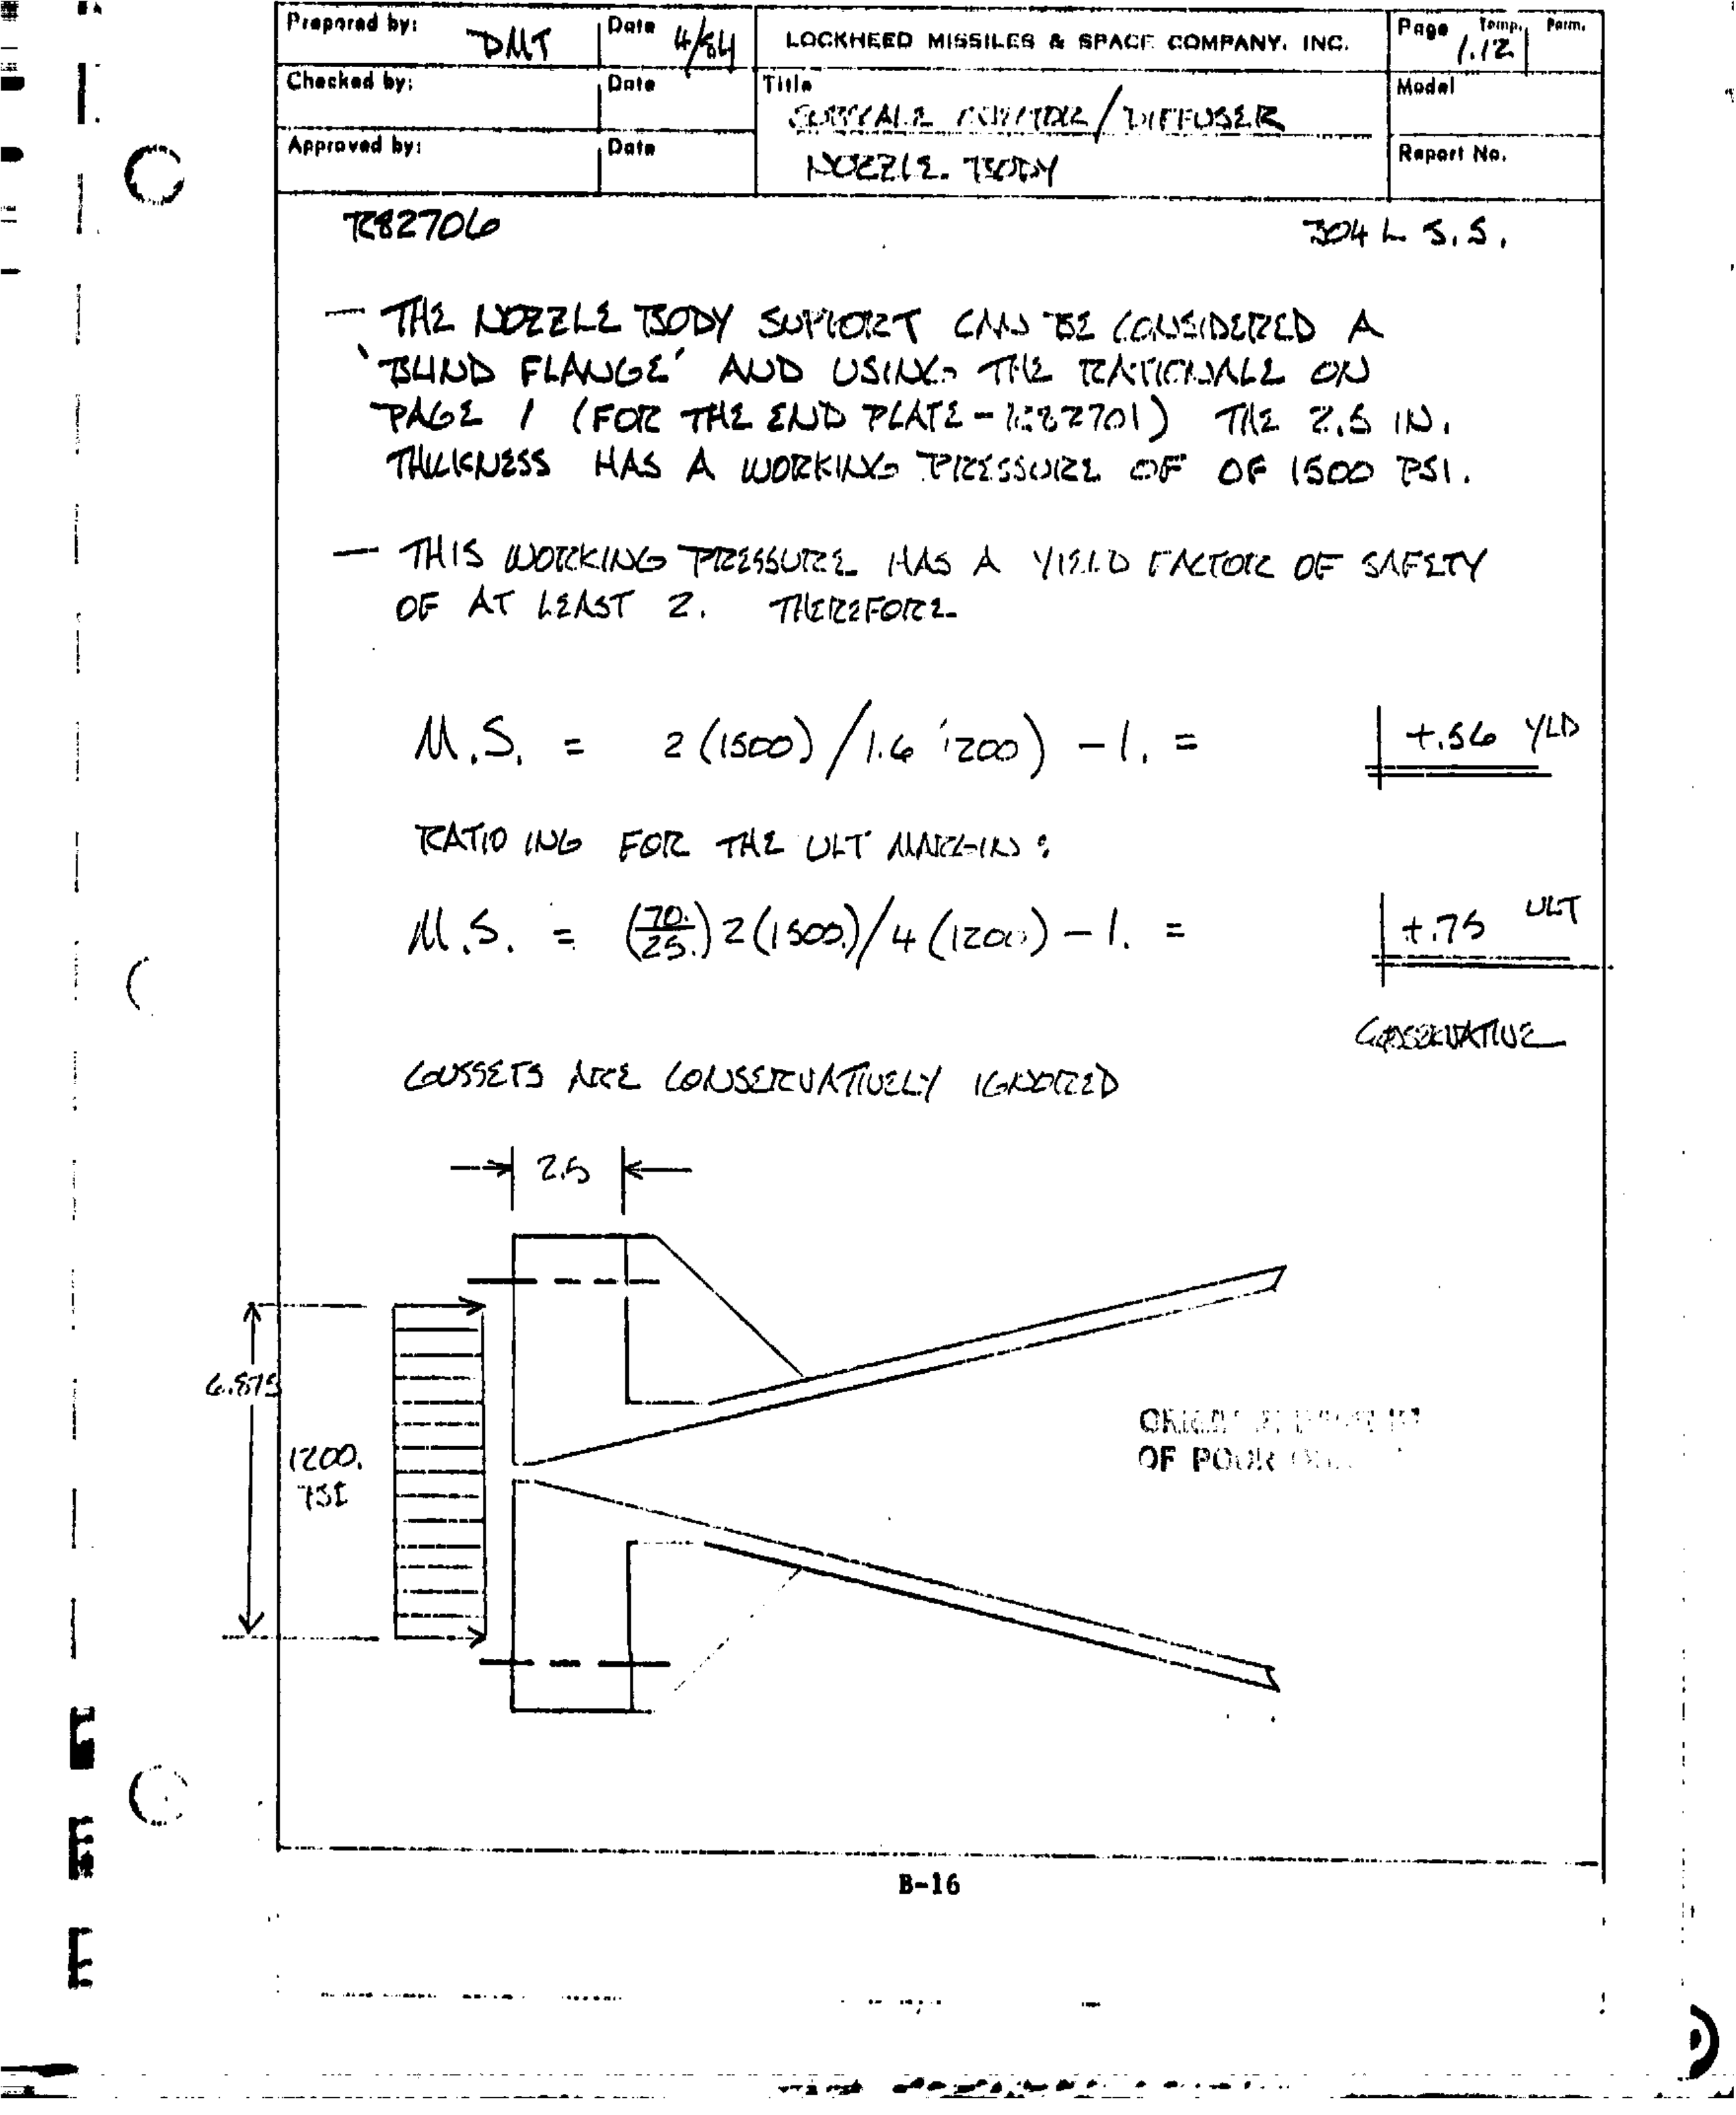 Prepared by: DMT Date 4/84 LOCKHEED MISSILES & SPACE COMPANY, INC. Page Temp. Perm.
1.12
Checked by: Date Title Model
SUBSCALE /DIFFUSER
Approved by: Date NOZZLE BODY Report No.
R82706 304 L S.S.
— THE NOZZLE BODY SUPPORT CAN BE CONSIDERED A
'BLIND FLANGE' AND USING THE RATIONALE ON
PAGE 1 (FOR THE END PLATE - R82701) THE 2.5 IN.
THICKNESS HAS A WORKING PRESSURE OF OF 1500 PSI.
— THIS WORKING PRESSURE HAS A YIELD FACTOR OF SAFETY
OF AT LEAST 2. THEREFORE
M.S. = 2(1500)/1.6 1200) - 1. = +.56 YLD
RATIO ING FOR THE ULT MARGIN:
M.S. = (70./25.) 2(1500.)/4(1200) - 1. = +.75 ULT
CONSERVATIVE
GUSSETS ARE CONSERVATIVELY IGNORED
2.5
6.875
1200.
PSI
OF POOR
B-16